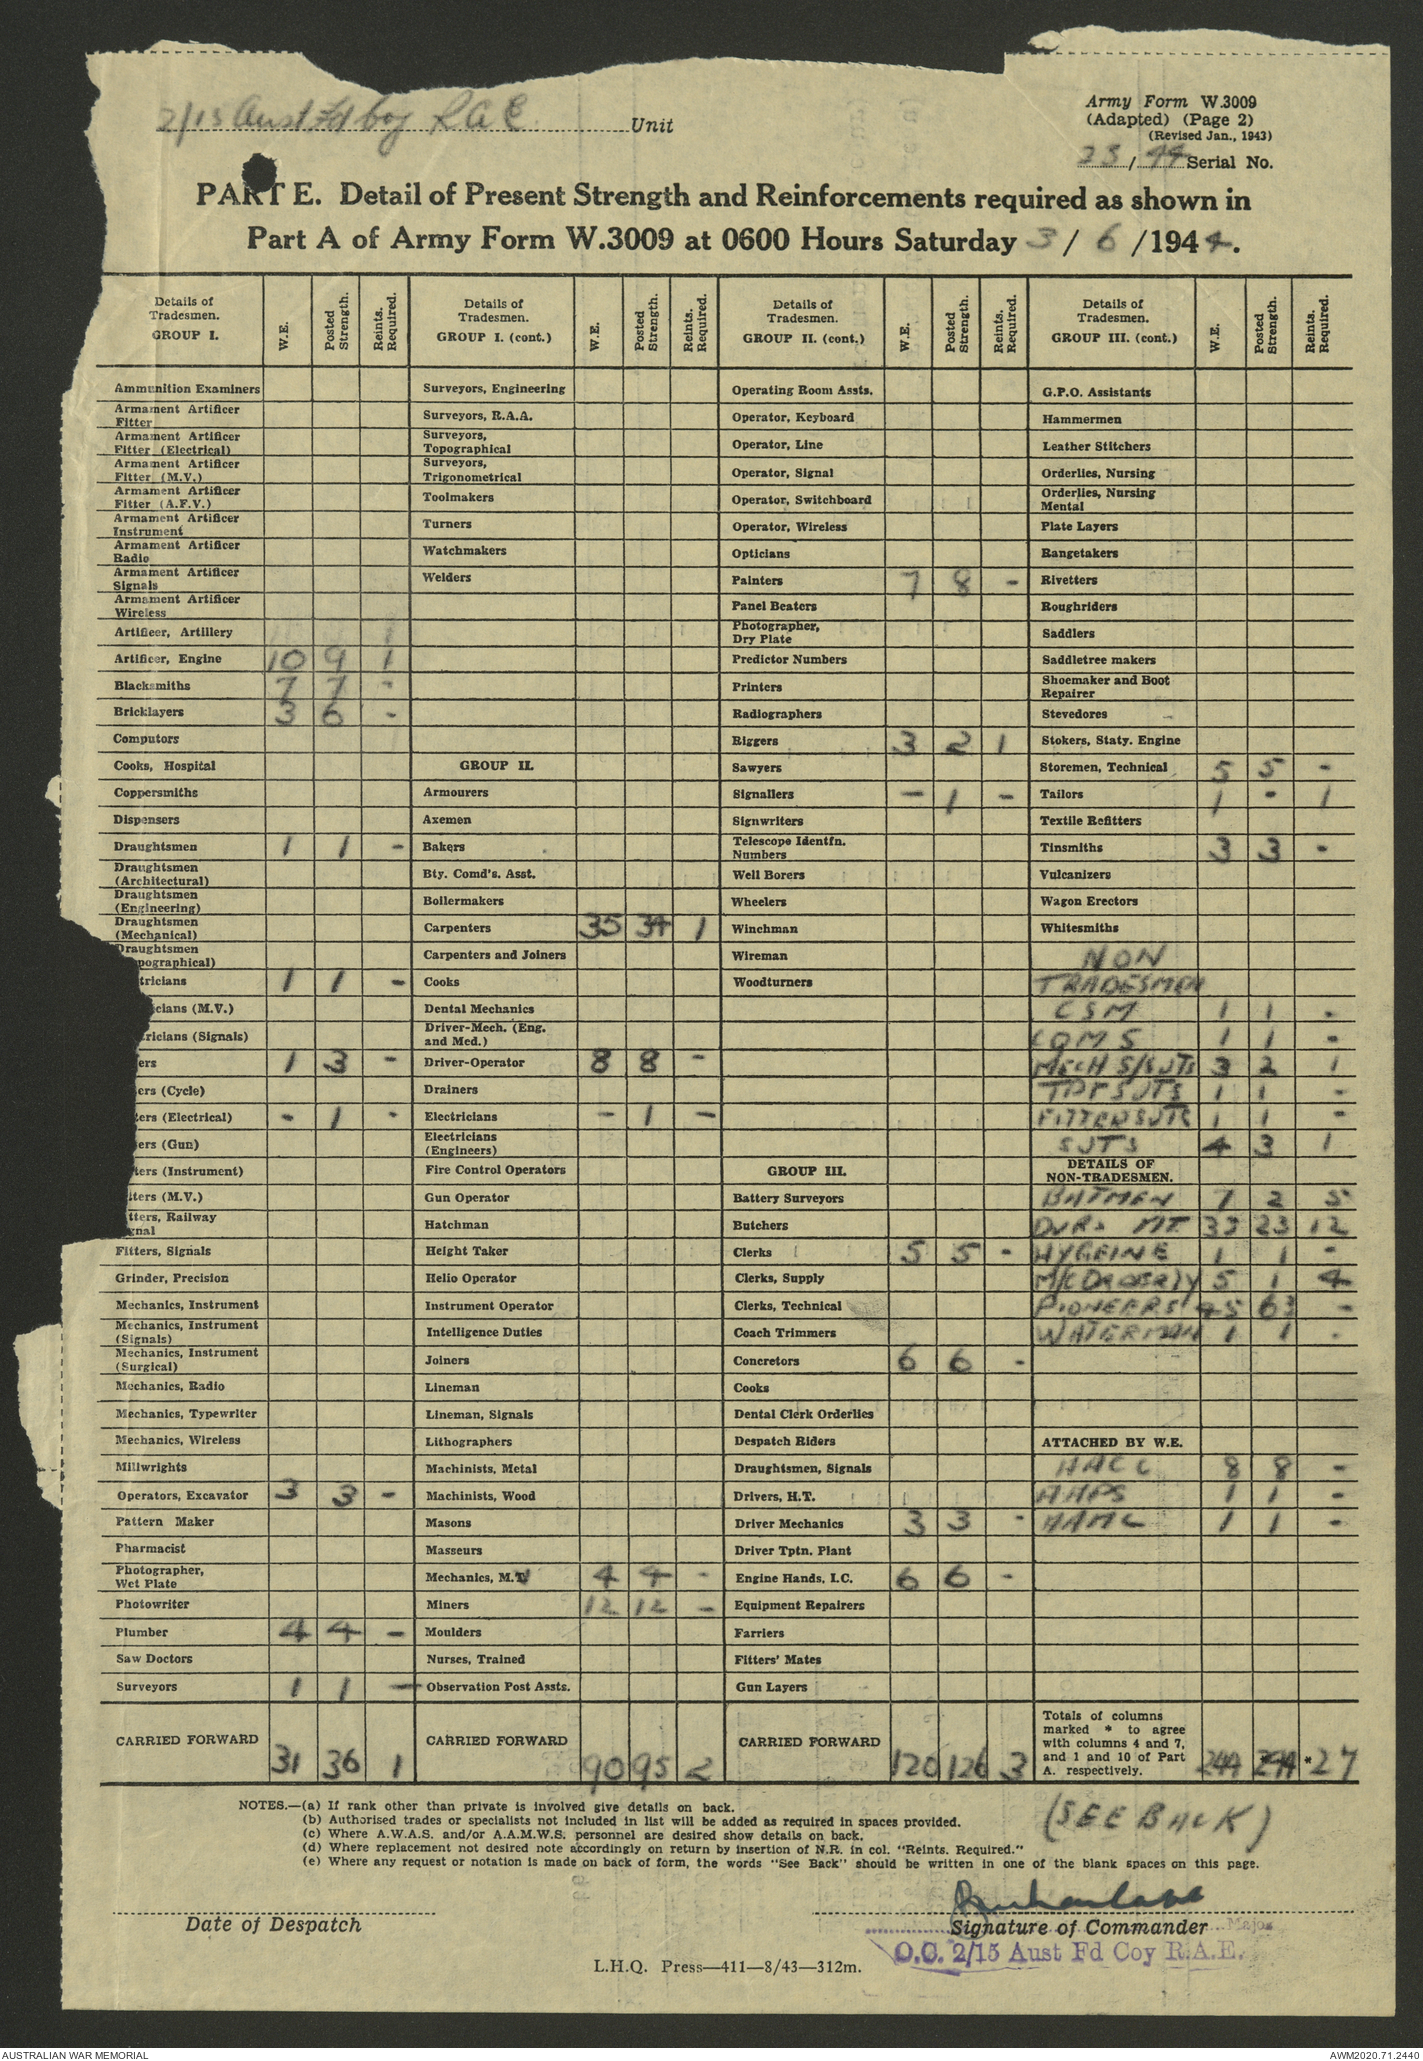 2/15 Aust Fd Coy R A E Unit
Army Form W.3009
(Adapted) (Page 2)
(Revised Jan., 1943)
23/44 Serial No.
PART E. Detail of Present Strength and Reinforcements required as shown in
Part A of Army Form W.3009 at 0600 Hours Saturday 3/ 6 /1944.
Details of Tradesmen. GROUP I. W.E. Posted Strength. Reints. Required.
Ammunition Examiners
Armament Artificer Fitter
Armament Artificer Fitter (Electrical)
Armament Artificer Fitter (M.V.)
Armament Artificer Fitter (A.F.V.)
Armament Artificer Instrument
Armament Artificer Radio
Armament Artificer Signals
Armament Artificer Wireless
Artificer, Artillery
Artificer, Engine 10 9 1
Blacksmiths 7 7 -
Bricklayers 3 6 -
Computors
Cooks, Hospital
Coppersmiths
Dispensers
Draughtsmen 1 1 -
Draughtsmen (Architectural)
Draughtsmen (Engineering)
Draughtsmen (Mechanical)
Draughtsmen pographical)
tricians 1 1 -
icians (M.V.)
tricians (Signals)
ers 1 3 -
ers (Cycle)
ters (Electrical) - 1 -
ers (Gun)
ters (Instrument)
tters (M.V.)
tters, Railway gnal
Fitters, Signals
Grinder, Precision
Mechanics, Instrument
Mechanics, Instrument (Signals)
Mechanics, Instrument (Surgical)
Mechanics, Radio
Mechanics, Typewriter
Mechanics, Wireless
Millwrights
Operators, Excavator 3 3 -
Pattern Maker
Pharmacist
Photographer, Wet Plate
Photowriter
Plumber 4 4 -
Saw Doctors
Surveyors 1 1 -
CARRIED FORWARD 31 36 1
Details of Tradesmen. GROUP I. (cont.) W.E. Posted Strength. Reints. Required.
Surveyors, Engineering
Surveyors, R.A.A.
Surveyors, Topographical
Surveyors, Trigonometrical
Toolmakers
Turners
Watchmakers
Welders
GROUP II.
Armourers
Axemen
Bakers
Bty. Comd's. Asst.
Boilermakers
Carpenters 35 34 1
Carpenters and Joiners
Cooks
Dental Mechanics
Driver-Mech. (Eng. and Med.)
Driver-Operator 8 8 -
Drainers
Electricians - 1 -
Electricians (Engineers)
Fire Control Operators
Gun Operator
Hatchman
Height Taker
Helio Operator
Instrument Operator
Intelligence Duties
Joiners
Lineman
Lineman, Signals
Lithographers
Machinists, Metal
Machinists, Wood
Masons
Masseurs
Mechanics, M.V 4 4 -
Miners 12 12 -
Moulders
Nurses, Trained
Observation Post Assts.
CARRIED FORWARD 90 95 2
Details of Tradesmen. GROUP II. (cont.) W.E. Posted Strength. Reints. Required.
Operating Room Assts.
Operator, Keyboard
Operator, Line
Operator, Signal
Operator, Switchboard
Operator, Wireless
Opticians
Painters 7 8 -
Panel Beaters
Photographer, Dry Plate
Predictor Numbers
Printers
Radiographers
Riggers 3 2 1
Sawyers
Signallers - 1 -
Signwriters
Telescope Identfn. Numbers
Well Borers
Wheelers
Winchman
Wireman
Woodturners
GROUP III.
Battery Surveyors
Butchers
Clerks 5 5 -
Clerks, Supply
Clerks, Technical
Coach Trimmers
Concretors 6 6 -
Cooks
Dental Clerk Orderlies
Despatch Riders
Draughtsmen, Signals
Drivers, H.T.
Driver Mechanics 3 3 -
Driver Tptn. Plant
Engine Hands, I.C. 6 6 -
Equipment Repairers
Farriers
Fitters' Mates
Gun Layers
CARRIED FORWARD 120 126 3
Details of Tradesmen. GROUP III. (cont.) W.E. Posted Strength. Reints. Required.
G.P.O. Assistants
Hammermen
Leather Stitchers
Orderlies, Nursing
Orderlies, Nursing Mental
Plate Layers
Rangetakers
Rivetters
Roughriders
Saddlers
Saddletree makers
Shoemaker and Boot Repairer
Stevedores
Stokers, Staty. Engine
Storemen, Technical 5 5 -
Tailors 1 - 1
Textile Refitters
Tinsmiths 3 3 -
Vulcanizers
Wagon Erectors
Whitesmiths
NON
TRADESMEN
CSM 1 1 -
CQMS 1 1 -
MECH S/SJTS 3 2 1
TPT SJTS 1 1 -
FITTER SJTS 1 1 -
SJTS 4 3 1
DETAILS OF NON-TRADESMEN.
BATMEN 7 2 5
DVRS MT. 33 23 12
HYGEINE 1 1 -
M/C 5 1 4
PIONEERS 45 63 -
WATERMAN 1 1 -
ATTACHED BY W.E.
AACC 8 8 -
AAPS 1 1 -
AAMC 1 1 -
Totals of columns marked * to agree with columns 4 and 7, and 1 and 10 of Part A. respectively. 244 *244 *27
NOTES.—(a) If rank other than private is involved give details on back.
(b) Authorised trades or specialists not included in list will be added as required in spaces provided.
(c) Where A.W.A.S. and/or A.A.M.W.S. personnel are desired show details on back.
(d) Where replacement not desired note accordingly on return by insertion of N.R. in col. "Reints. Required."
(e) Where any request or notation is made on back of form, the words "See Back" should be written in one of the blank spaces on this page.
(SEE BACK)
Date of Despatch
Signature of Commander Major
O.C. 2/15 Aust Fd Coy R.A.E.
L.H.Q. Press—411—8/43—312m.
AUSTRALIAN WAR MEMORIAL
AWM2020.71.2440